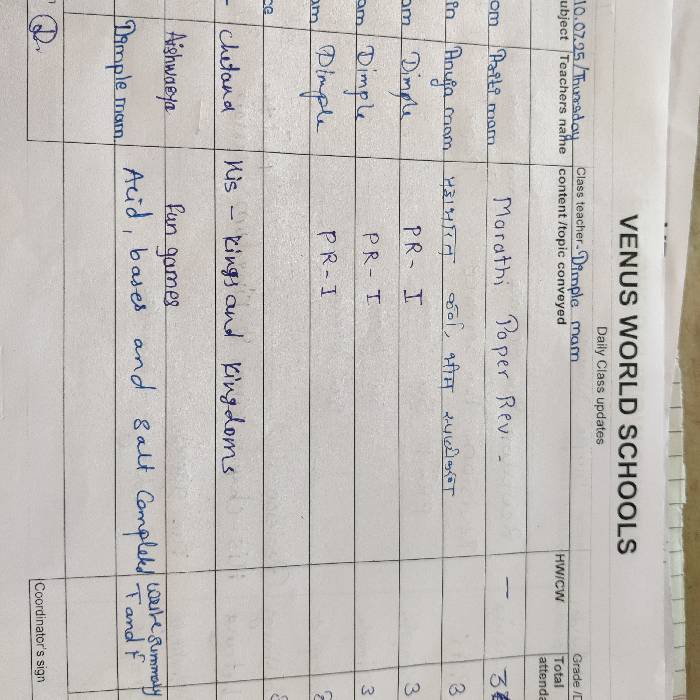 VENUS WORLD SCHOOLS
Daily Class updates
10.07.25/Thursday Class teacher - Dimple mam Grade
ubject Teachers name content /topic conveyed HW/CW Total attenda
om mam Marathi Paper Rev. - — 3
in Anuja mam महाभारत कर्ण, भीम 3
am Dimple PR-I 3
am Dimple PR-I 3
am Dimple PR-I
ce
- Chetana His - Kings and Kingdoms
Aishwarya Fun games
Dimple mam Acid, bases and salt Completed write summary T and F
D. Coordinator's sign